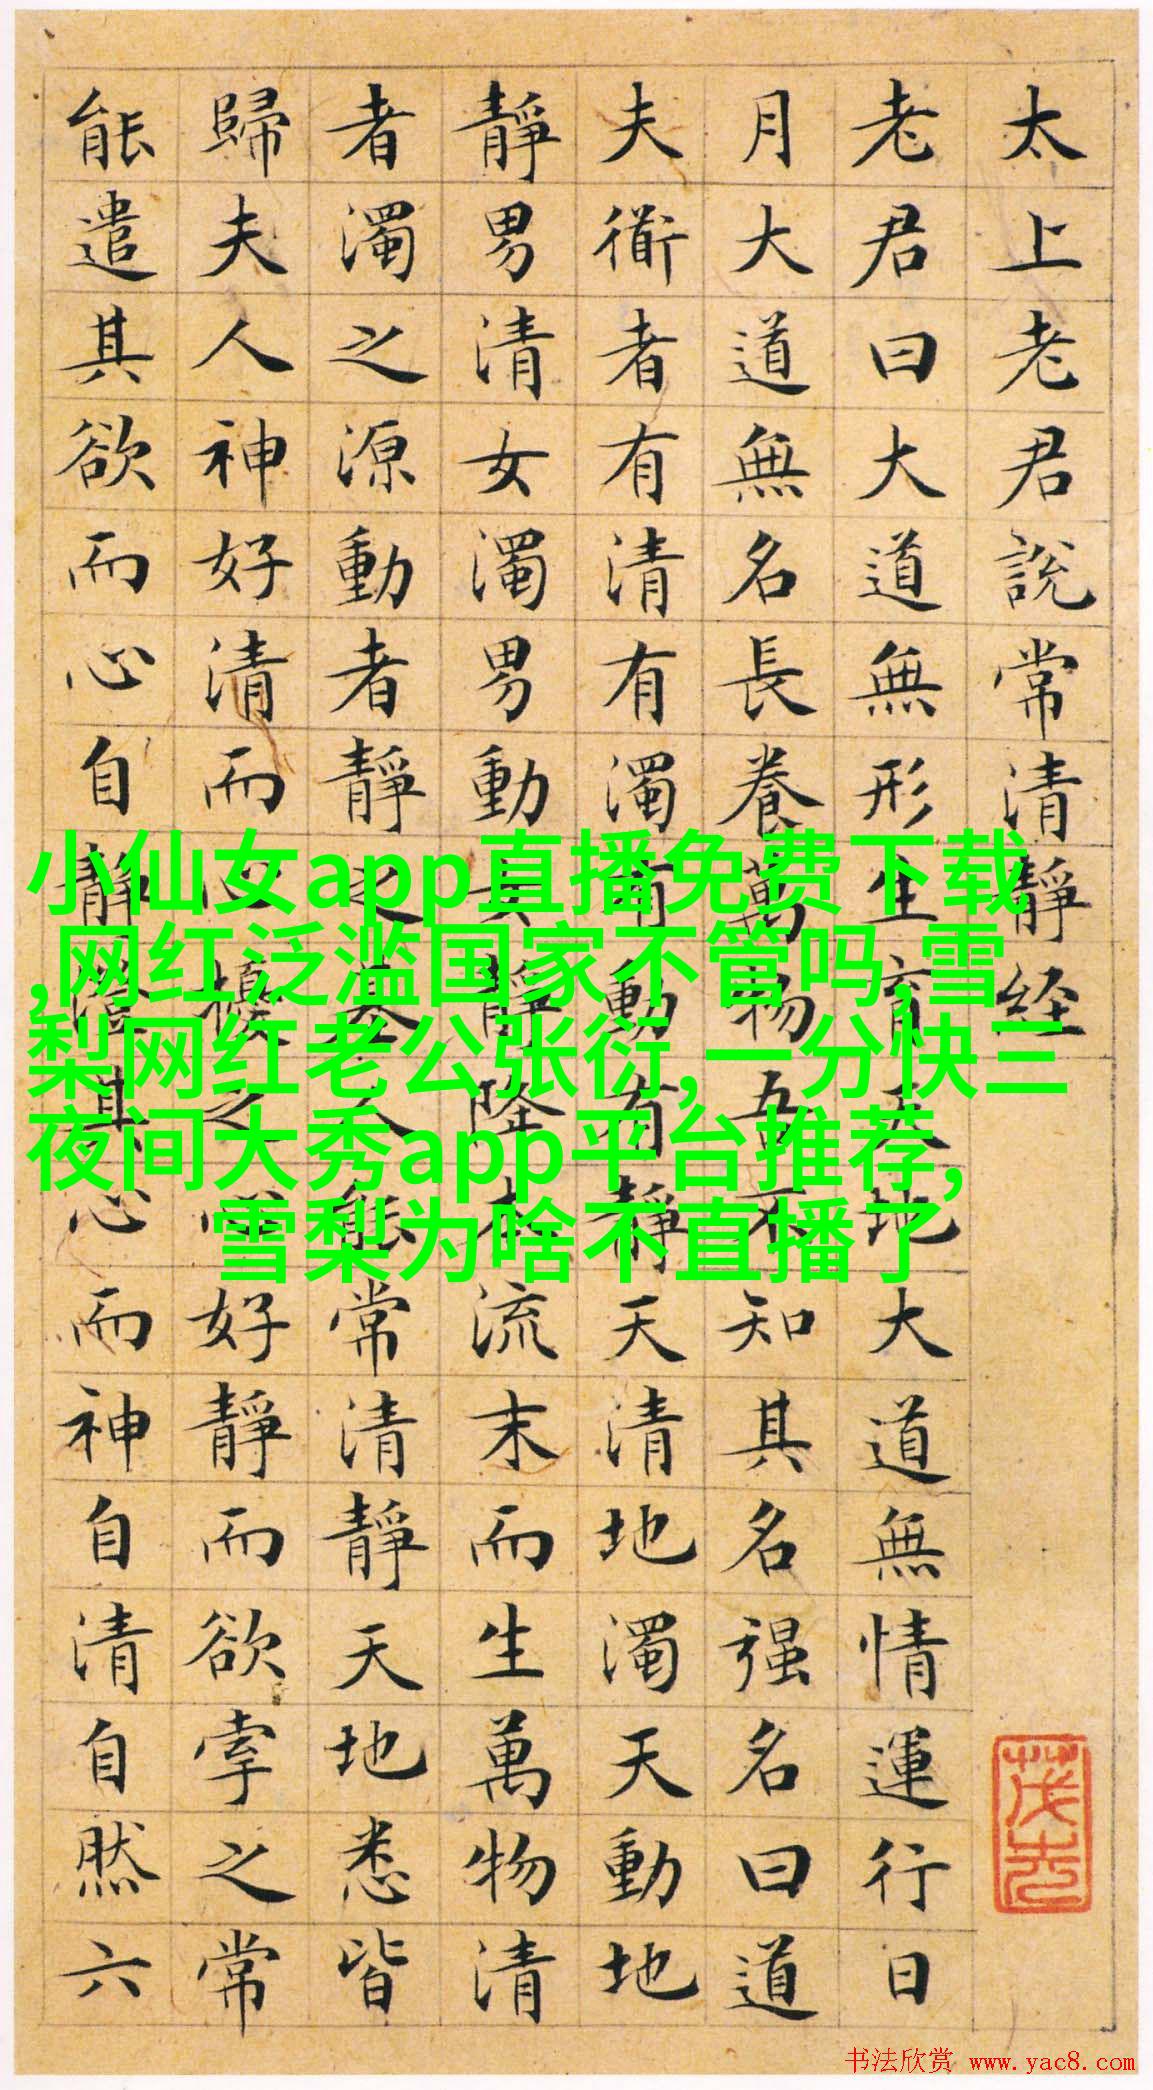 太上老君說常清靜经
老君曰大道無形生育天地大道無情運行日
月大道無名長養萬物吾不知其名强名曰道
夫衜者有清有濁有動有靜天清地濁天動地
靜男清女濁男動女靜降本流末而生萬物清
者濁之源動者靜之基人能常清靜天地悉皆
歸夫人神好清而心擾之心好靜而欲牽之常
能遣其欲而心自靜澄其心而神自清自然六
小仙女app直播免费下载
,网红泛滥国家不管吗,雪
梨网红老公张衍,一分快三
夜间大秀app平台推荐,
雪梨为啥不直播了
书法欣赏 www.yac8.com